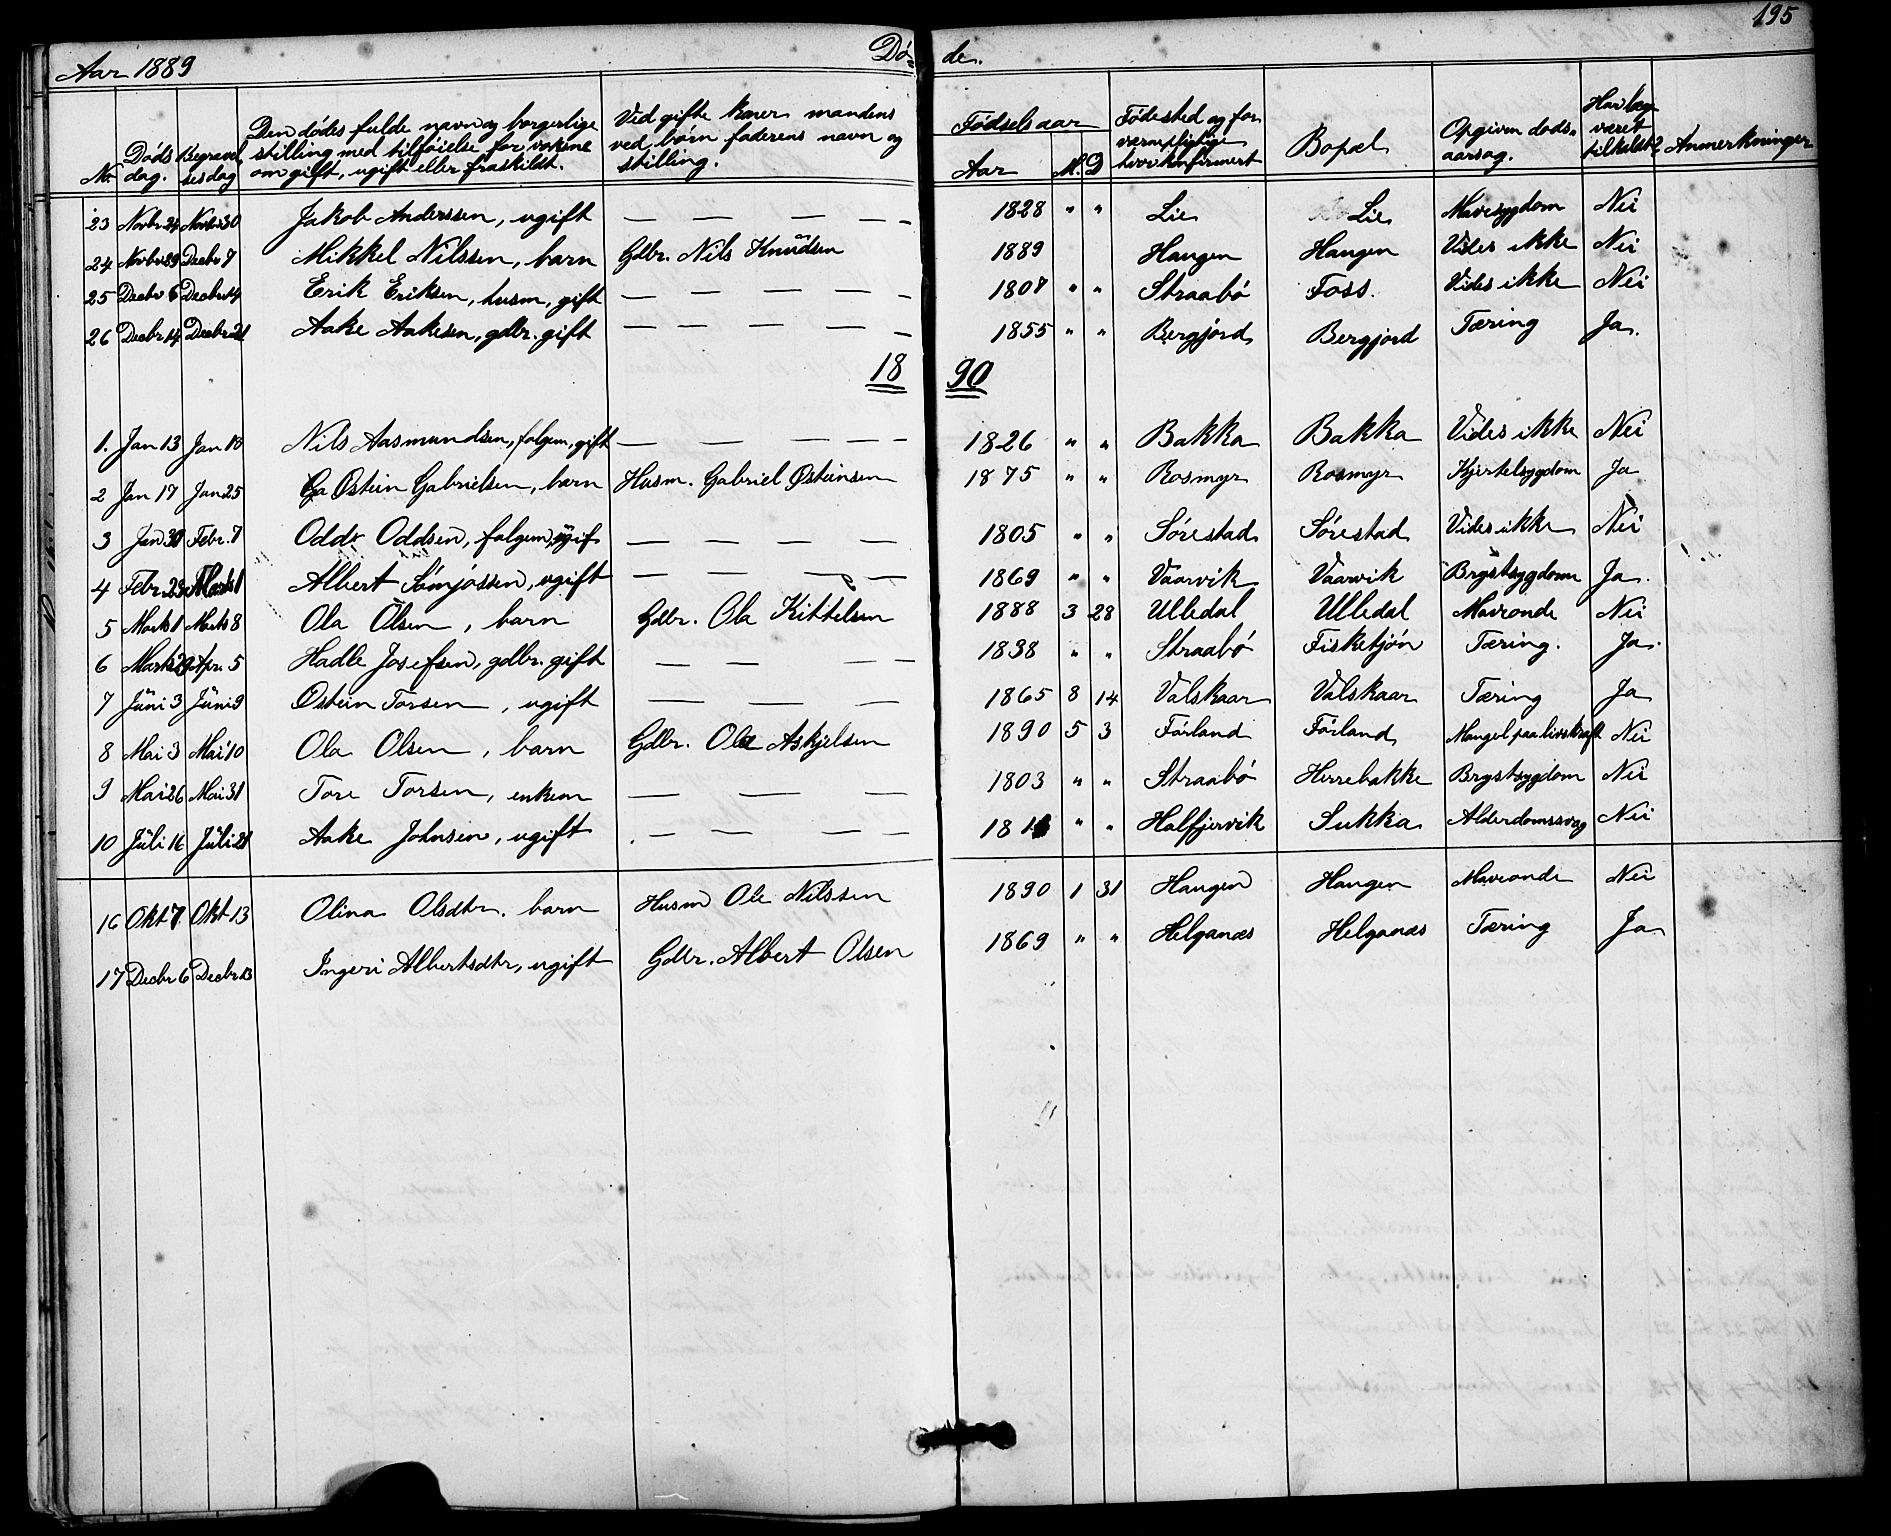 195
Aar 1889 Dø- de.
No. Døds dag. Begravel sesdag Den dødes fulde navn og borgerlige stilling med tilføielse for voksne om gift, ugift eller fraskildt. Ved gifte koner mandens ved børn faderens navn og stilling. Fødselsaar Aar M. D Fødested og for værnepligtige hvor konfirmert Bopæl Opgiven døds- aarsag. Har læge været tilkaldt? Anmerkninger
23 Novbr 24 Novbr 30 Jakob Anderssen, ugift — — — - - 1828 " " Lie Lie Mavesygdom Nei
24 Novbr 29 Decbr 7 Mikkel Nilssen, barn Gdbr. Nils Knudsen 1889 Haugen Haugen Vides ikke Nei
25 Decbr 6 Decbr 14 Erik Eriksen, husm, gift — — — — - 1807 " " Straabø Foss. Vides ikke Nei
26 Decbr 14 Decbr 21 Aake Aakesen, gdbr. gift — — — — - 1855 " " Bergjord Bergjord Tæring Ja.
18 90
1. Jan 13 Jan 18 Nils Aasmundsen, folgem, gift — — — - - 1826 " " Bakka Bakka Vides ikke Nei
2 Jan 17 Jan 25 Østein Gabrielsen, barn Husm. Gabriel Østeinsen 1875 " " Rosmyr Rosmyr Kjertelsygdom Ja
3 Jan 30 Febr. 7 Odd Oddsen, folgem, — — — — — 1805 " " Sørestad Sørestad Vides ikke Nei
4 Febr 23 Marts 1 Albert Sømjossen, ugift — — — — 1869 " " Vaarvik Vaarvik Brystsygdom Ja.
5 Marts 1 Marts 8 Ola Olsen, barn Gdbr. Ola Kittelsen 1888 3 28 Ulledal Ulledal Maveonde Nei
6 Marts 29 Apr. 5 Hadle Josefsen, gdbr. gift — — — — 1838 " " Straabø Fisketjøn Tæring. Ja.
7 Juni 3 Juni 9 Østein Torsen, ugift — — — — 1865 8 14 Valskaar Valskaar Tæring Ja
8 Mai 3 Mai 10 Ola Olsen, barn Gdbr. Ola Askjelsen 1890 5 3 Førland Førland Mangel paa livskraft Nei
9 Mai 26 Mai 31 Tore Torsen, enkem — — — — 1803 " " Straabø Herrebakke Brystsygdom Nei
10 Juli 16 Juli 21 Aake Johnsen, ugift - — — — 181 " " Halfjervik Sukka Alderdomssvag Nei
16 Okt 7 Okt 13 Olina Olsdtr. barn Husm Ole Nilssen 1890 1 31 Haugen Haugen Maveonde Nei
17 Decbr 6 Decbr 13 Ingeri Albertsdtr, ugift Gdbr. Albert Olsen 1869 " " Helganæs Helganæs Tæring Ja